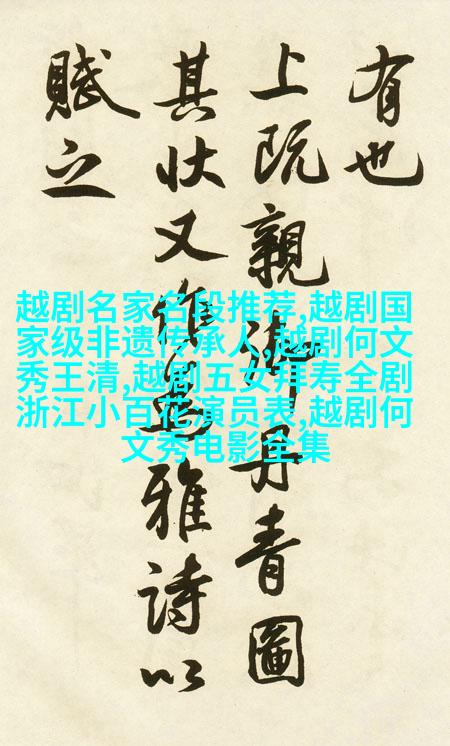 有也
上既親御丹青圖
其状又作雅詩以
賦之
越剧名家名段推荐,越剧国
家级非遗传承人,越剧何文
秀王清,越剧五女拜寿全剧
浙江小百花演员表,越剧何
文秀电影全集